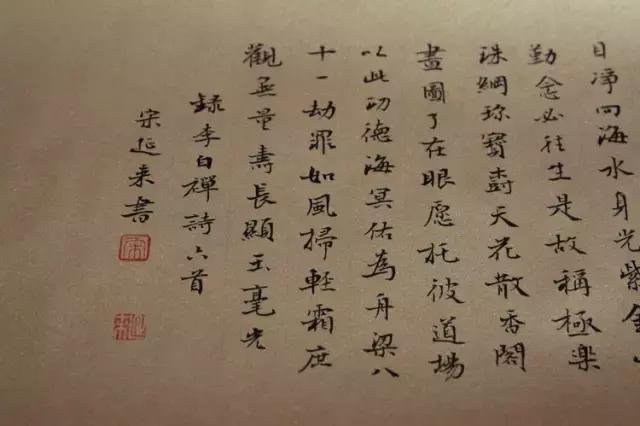 目净四海水身光紫金
勤念必往生是故稱極樂
珠網珍寶壽天花散香閣
畫圖了在眼愿托彼道場
以此功德海冥佑為舟梁八
十一劫罪如風掃軽霜庶
觀无量壽長顯玉毫光
録李白禪詩六首
宋延来書
宋